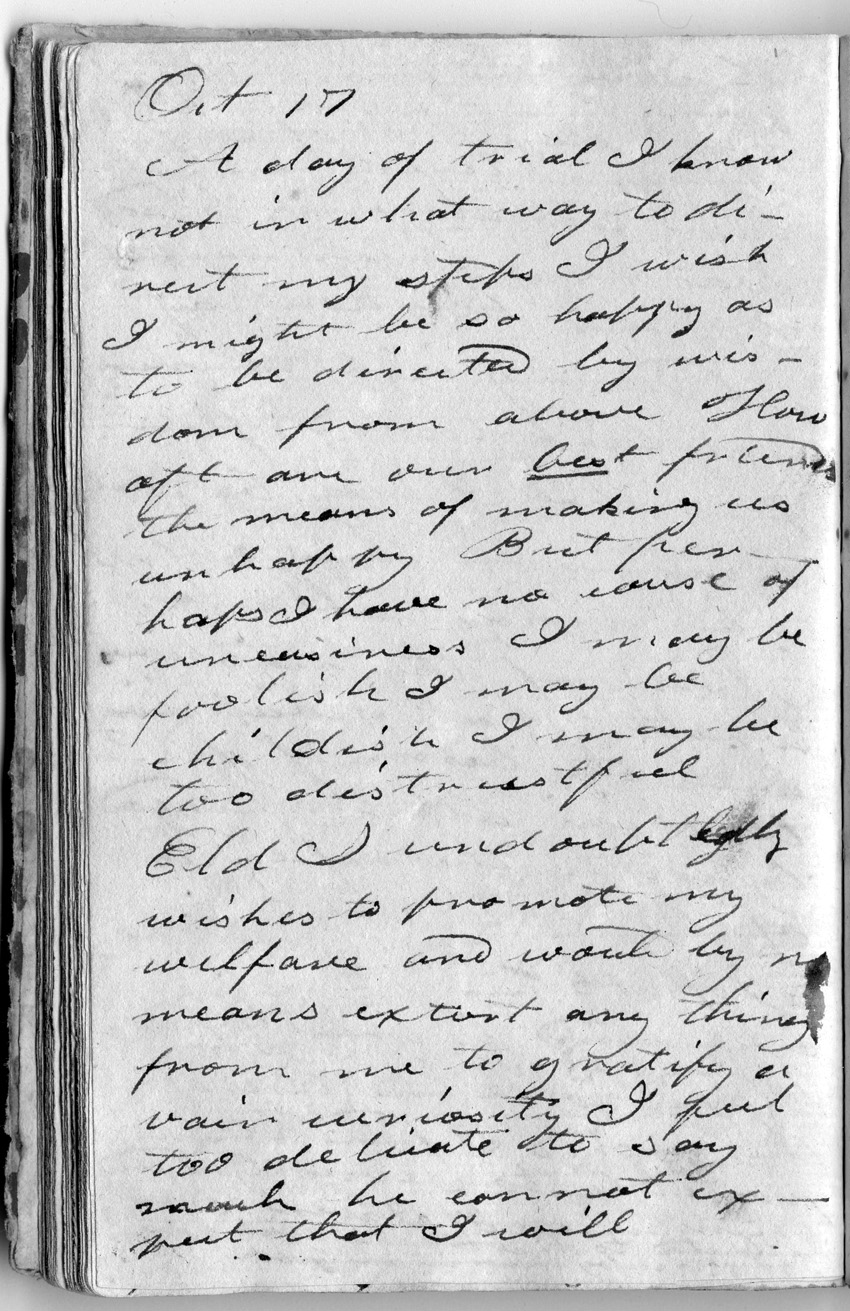 Oct 17
A day of trial I know
not in what way to di-
rect my steps I wish
I might be so happy as
to be directed by wis-
dom from above How
oft are our best friends
the means of making us
unhappy But per-
haps I have no cause of
uneasiness I may be
foolish I may be
childish I may be
too distrustful
Eld J undoubtedly
wishes to promote my
welfare and would by no
means extort any thing
from me to gratify a
vain curiosity I feel
too delicate to say
much he cannot ex-
pect that I will